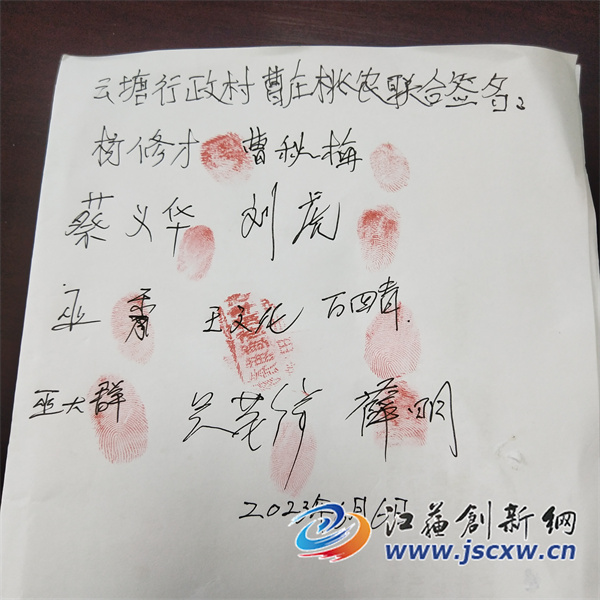 云塘行政村曹庄桃农联合签名:
杨修才 曹秋梅
蔡义华 刘虎
巫 王文化 万四青.
巫大群 兰花侍 薛明
2023年6月6日
江苏创新网
www.jscxw.cn